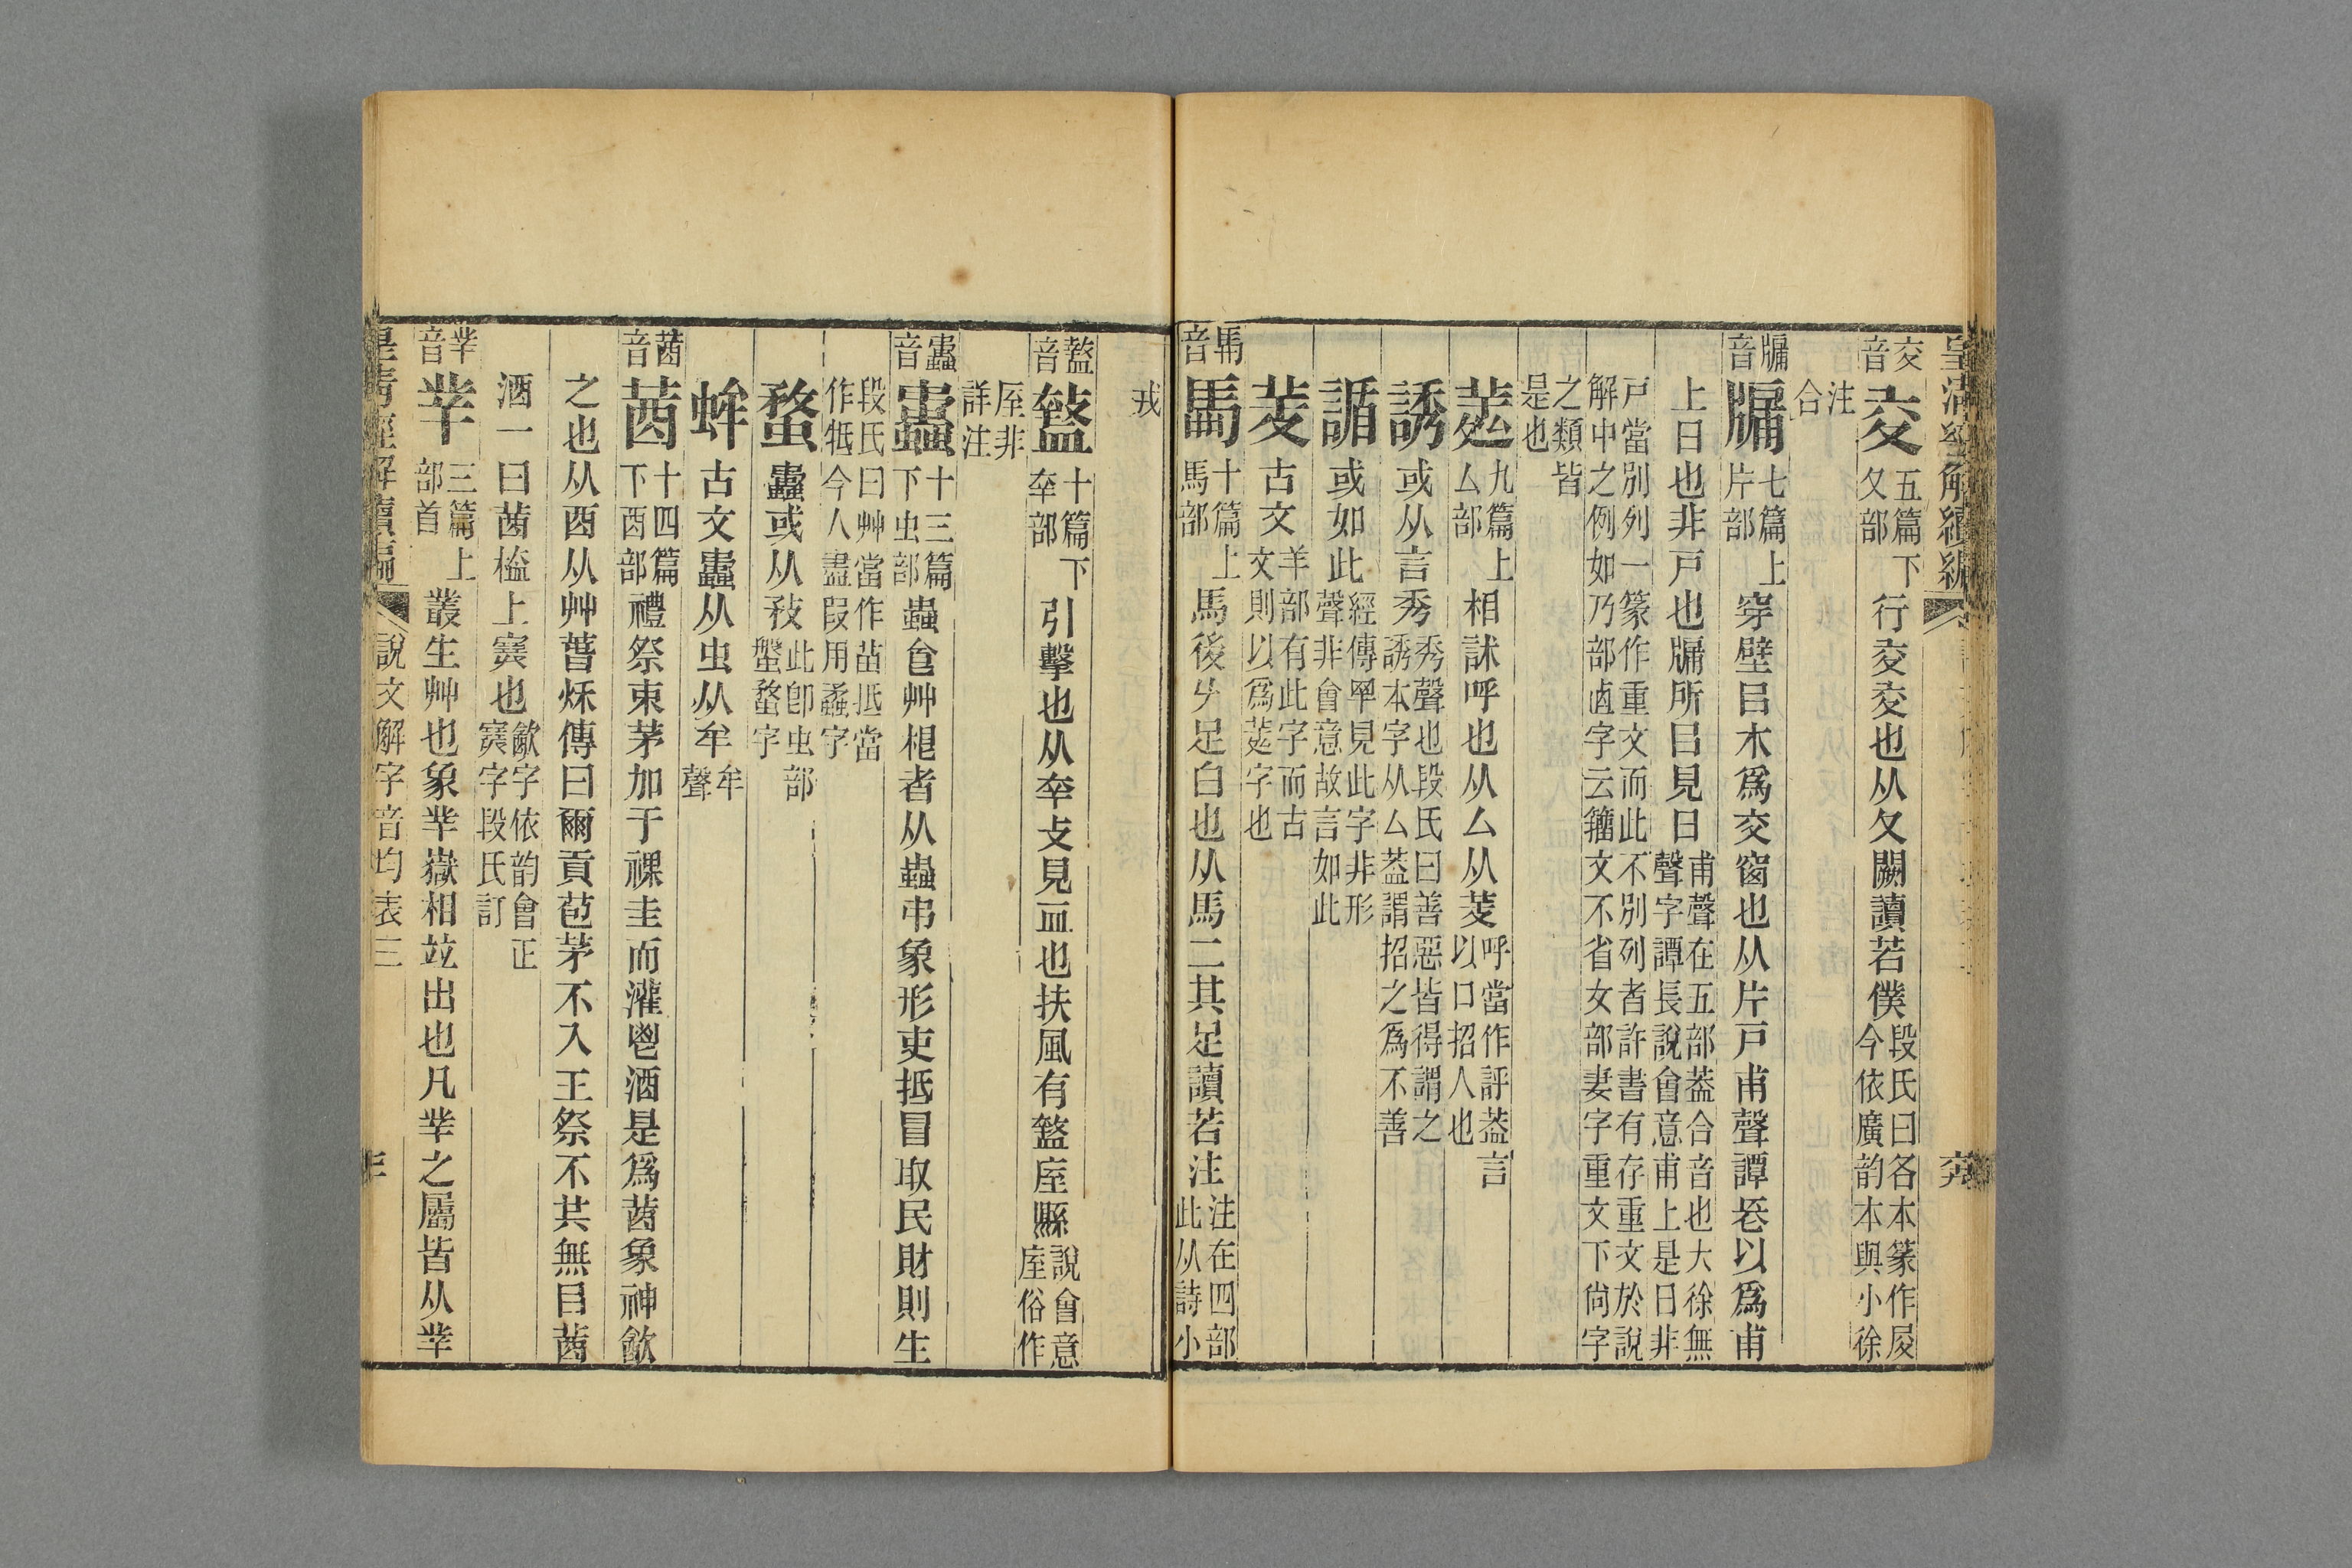 皇清經解續編
㚆音 㚆 五篇下夂部 行㚆㚆也从夂闕讀若僕 段氏曰各本篆作㞋今依廣韵本與小徐
合注
牖音 牖 七篇上片部 穿壁㠯木爲交窗也从片戶甫聲譚長以爲甫
上日也非戶也牖所㠯見日 甫聲在五部葢合音也大徐無聲字譚長說會意甫上是日非
戶當別列一篆作重文而此不別列者許書有存重文於說解中之例如乃部卤字云籒文不省女部妻字重文下尙字
之類皆是也
羑 九篇上厶部 相訹呼也从厶从羑 呼當作評葢言以口招人也
誘 或从言秀 秀聲也段氏曰善惡皆得謂之誘本字从厶葢謂招之爲不善
䛻 或如此 經傳罕見此字非形聲非會意故言如此
羑 古文 羊部有此字而古文則以爲羑字也
馵音 馵 十篇上馬部 馬後𠂇足白也从馬二其足讀若注 注在四部此从詩小
戎
盩音 盩 十篇下㚔部 引擊也从㚔攴見血也扶風有盩庢縣 說會意庢俗作
厔非詳注
蟊音 蟊 十三篇下虫部 蟲食艸根者从蟲弔象形吏抵冒取民財則生
段氏曰艸當作苗抵當作牴今人盡叚用蟊字
蝥 蟊或从敄 此卽虫部螌蝥字
蛑 古文蟊从虫从牟 牟聲
莤音 莤 十四篇下酉部 禮祭束茅加于祼圭而灌鬯酒是爲莤象神歆
之也从酉从艸萅秌傳曰爾貢苞茅不入王祭不共無㠯莤
酒一曰莤榼上㝥也 歆字依韵會正㝥字段氏訂
丵音 丵 三篇上部首 叢生艸也象丵嶽相竝出也凡丵之屬皆从丵
皇清經解續編 說文解字音均表三